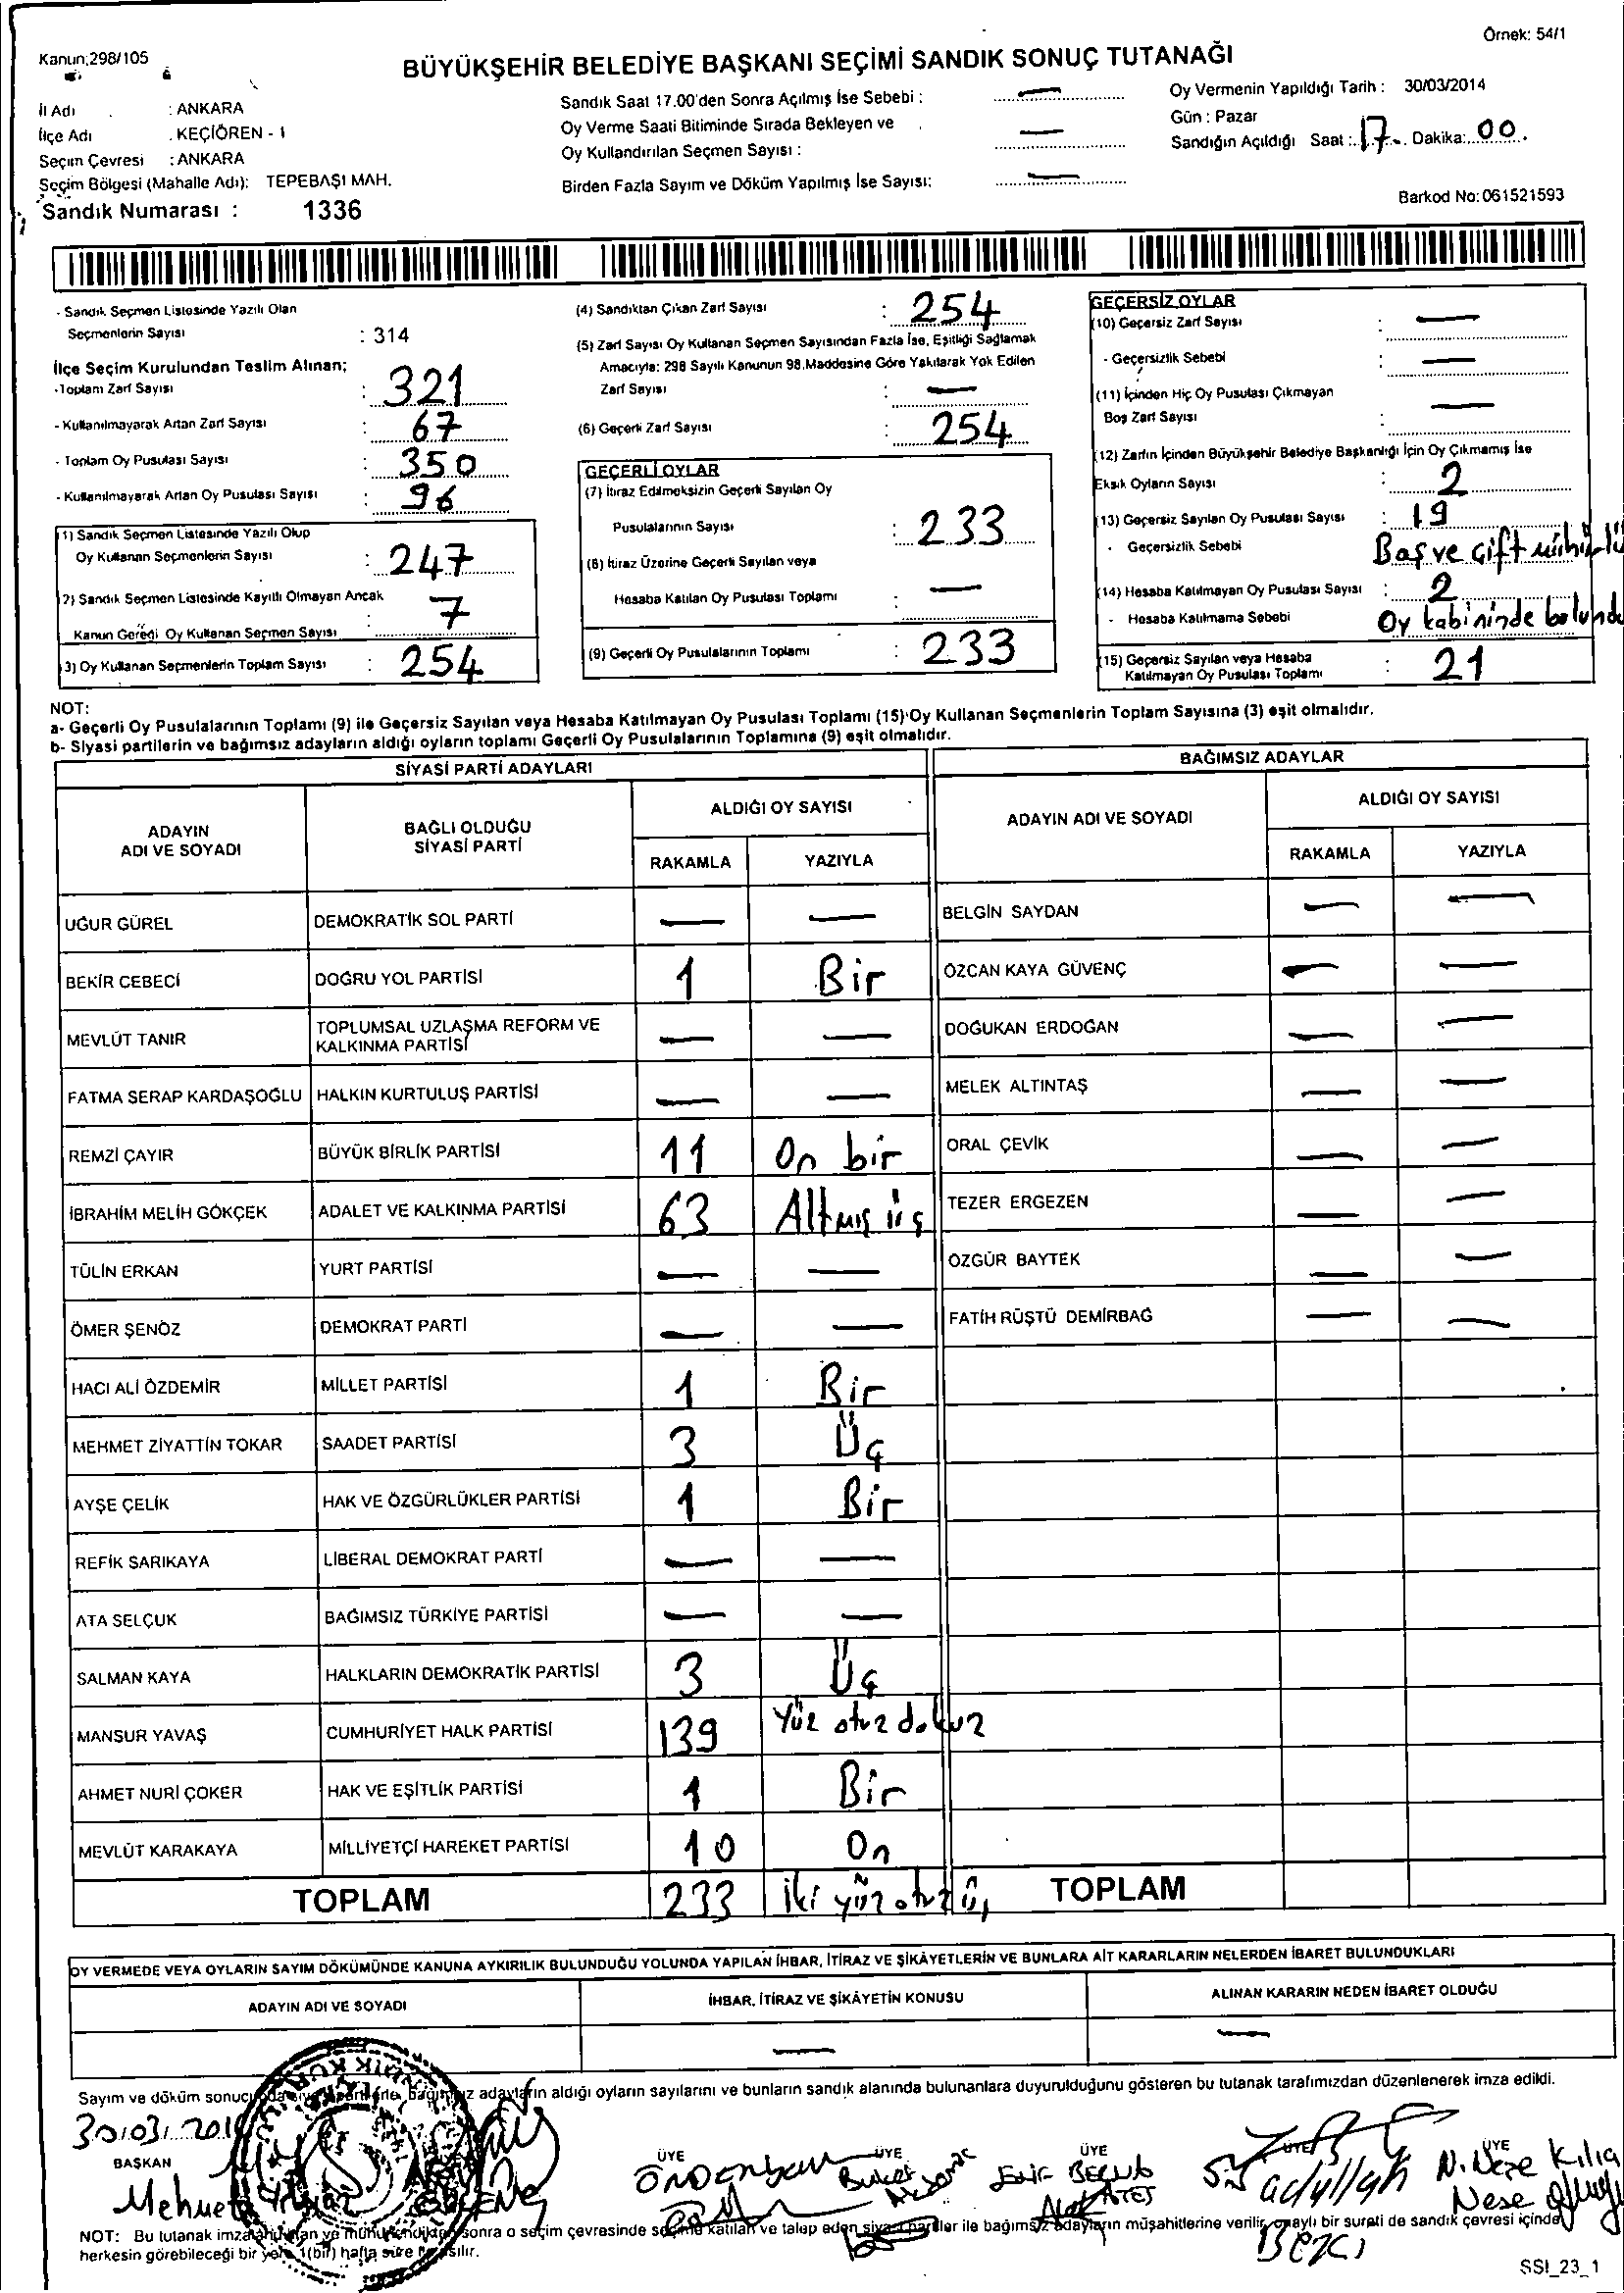 Örnek: 54/1
Kanun:298/105
BÜYÜKŞEHİR BELEDİYE BAŞKANI SEÇİMİ SANDIK SONUÇ TUTANAĞI
İl Adı : ANKARA
İlçe Adı : KEÇİÖREN - 1
Seçim Çevresi : ANKARA
Seçim Bölgesi (Mahalle Adı): TEPEBAŞI MAH.
Sandık Numarası : 1336
Sandık Saat 17.00'den Sonra Açılmış İse Sebebi : —
Oy Verme Saati Bitiminde Sırada Bekleyen ve
Oy Kullandırılan Seçmen Sayısı : —
Birden Fazla Sayım ve Döküm Yapılmış İse Sayısı: —
Oy Vermenin Yapıldığı Tarih : 30/03/2014
Gün : Pazar
Sandığın Açıldığı Saat : 17 Dakika: 00
Barkod No: 061521593
- Sandık Seçmen Listesinde Yazılı Olan
Seçmenlerin Sayısı : 314
İlçe Seçim Kurulundan Teslim Alınan;
-Toplam Zarf Sayısı : 321
- Kullanılmayarak Artan Zarf Sayısı : 67
- Toplam Oy Pusulası Sayısı : 350
- Kullanılmayarak Artan Oy Pusulası Sayısı : 96
1) Sandık Seçmen Listesinde Yazılı Olup
Oy Kullanan Seçmenlerin Sayısı : 247
2) Sandık Seçmen Listesinde Kayıtlı Olmayan Ancak
Kanun Gereği Oy Kullanan Seçmen Sayısı : 7
3) Oy Kullanan Seçmenlerin Toplam Sayısı : 254
(4) Sandıktan Çıkan Zarf Sayısı : 254
(5) Zarf Sayısı Oy Kullanan Seçmen Sayısından Fazla İse, Eşitliği Sağlamak
Amacıyla: 298 Sayılı Kanunun 98.Maddesine Göre Yakılarak Yok Edilen
Zarf Sayısı : —
(6) Geçerli Zarf Sayısı : 254
GEÇERLİ OYLAR
(7) İtiraz Edilmeksizin Geçerli Sayılan Oy
Pusulalarının Sayısı : 233
(8) İtiraz Üzerine Geçerli Sayılan veya
Hesaba Katılan Oy Pusulası Toplamı : —
(9) Geçerli Oy Pusulalarının Toplamı : 233
GEÇERSİZ OYLAR
(10) Geçersiz Zarf Sayısı : —
- Geçersizlik Sebebi : —
(11) İçinden Hiç Oy Pusulası Çıkmayan
Boş Zarf Sayısı : —
(12) Zarfın İçinden Büyükşehir Belediye Başkanlığı İçin Oy Çıkmamış İse
Eksik Oyların Sayısı : 2
(13) Geçersiz Sayılan Oy Pusulası Sayısı : 19
- Geçersizlik Sebebi Baş ve çift mühürlü
(14) Hesaba Katılmayan Oy Pusulası Sayısı : 2
- Hesaba Katılmama Sebebi Oy kabininde bulundu
(15) Geçersiz Sayılan veya Hesaba
Katılmayan Oy Pusulası Toplamı : 21
NOT:
a- Geçerli Oy Pusulalarının Toplamı (9) ile Geçersiz Sayılan veya Hesaba Katılmayan Oy Pusulası Toplamı (15) Oy Kullanan Seçmenlerin Toplam Sayısına (3) eşit olmalıdır.
b- Siyasi partilerin ve bağımsız adayların aldığı oyların toplamı Geçerli Oy Pusulalarının Toplamına (9) eşit olmalıdır.
SİYASİ PARTİ ADAYLARI
ADAYIN ADI VE SOYADI BAĞLI OLDUĞU SİYASİ PARTİ ALDIĞI OY SAYISI
RAKAMLA YAZIYLA
UĞUR GÜREL DEMOKRATİK SOL PARTİ — —
BEKİR CEBECİ DOĞRU YOL PARTİSİ 1 Bir
MEVLÜT TANIR TOPLUMSAL UZLAŞMA REFORM VE KALKINMA PARTİSİ — —
FATMA SERAP KARDAŞOĞLU HALKIN KURTULUŞ PARTİSİ — —
REMZİ ÇAYIR BÜYÜK BİRLİK PARTİSİ 11 On bir
İBRAHİM MELİH GÖKÇEK ADALET VE KALKINMA PARTİSİ 63 Altmış üç
TÜLİN ERKAN YURT PARTİSİ — —
ÖMER ŞENÖZ DEMOKRAT PARTİ — —
HACI ALİ ÖZDEMİR MİLLET PARTİSİ 1 Bir
MEHMET ZİYATTİN TOKAR SAADET PARTİSİ 3 Üç
AYŞE ÇELİK HAK VE ÖZGÜRLÜKLER PARTİSİ 1 Bir
REFİK SARIKAYA LİBERAL DEMOKRAT PARTİ — —
ATA SELÇUK BAĞIMSIZ TÜRKİYE PARTİSİ — —
SALMAN KAYA HALKLARIN DEMOKRATİK PARTİSİ 3 Üç
MANSUR YAVAŞ CUMHURİYET HALK PARTİSİ 139 Yüz otuz dokuz
AHMET NURİ ÇOKER HAK VE EŞİTLİK PARTİSİ 1 Bir
MEVLÜT KARAKAYA MİLLİYETÇİ HAREKET PARTİSİ 10 On
TOPLAM 233 İki yüz otuz üç
BAĞIMSIZ ADAYLAR
ADAYIN ADI VE SOYADI ALDIĞI OY SAYISI
RAKAMLA YAZIYLA
BELGİN SAYDAN — —
ÖZCAN KAYA GÜVENÇ — —
DOĞUKAN ERDOĞAN — —
MELEK ALTINTAŞ — —
ORAL ÇEVİK — —
TEZER ERGEZEN — —
ÖZGÜR BAYTEK — —
FATİH RÜŞTÜ DEMİRBAĞ — —
TOPLAM
OY VERMEDE VEYA OYLARIN SAYIM DÖKÜMÜNDE KANUNA AYKIRILIK BULUNDUĞU YOLUNDA YAPILAN İHBAR, İTİRAZ VE ŞİKÂYETLERİN VE BUNLARA AİT KARARLARIN NELERDEN İBARET BULUNDUKLARI
ADAYIN ADI VE SOYADI İHBAR, İTİRAZ VE ŞİKÂYETİN KONUSU ALINAN KARARIN NEDEN İBARET OLDUĞU
— —
Sayım ve döküm sonucunda siyasi partilerle, bağımsız adayların aldığı oyların sayılarını ve bunların sandık alanında bulunanlara duyurulduğunu gösteren bu tutanak tarafımızdan düzenlenerek imza edildi.
30/03/2014
BAŞKAN ÜYE ÜYE ÜYE ÜYE ÜYE
Mehmet Yılmaz
Buket
Elif
ATEŞ
N. Neşe Kılıç
Neşe
NOT: Bu tutanak imzalandıktan ve mühürlendikten sonra o seçim çevresinde seçime katılan ve talep eden siyasi partiler ile bağımsız adayların müşahitlerine verilir, onaylı bir sureti de sandık çevresi içinde
herkesin görebileceği bir yere 1(bir) hafta süre ile asılır.
SSI_23_1